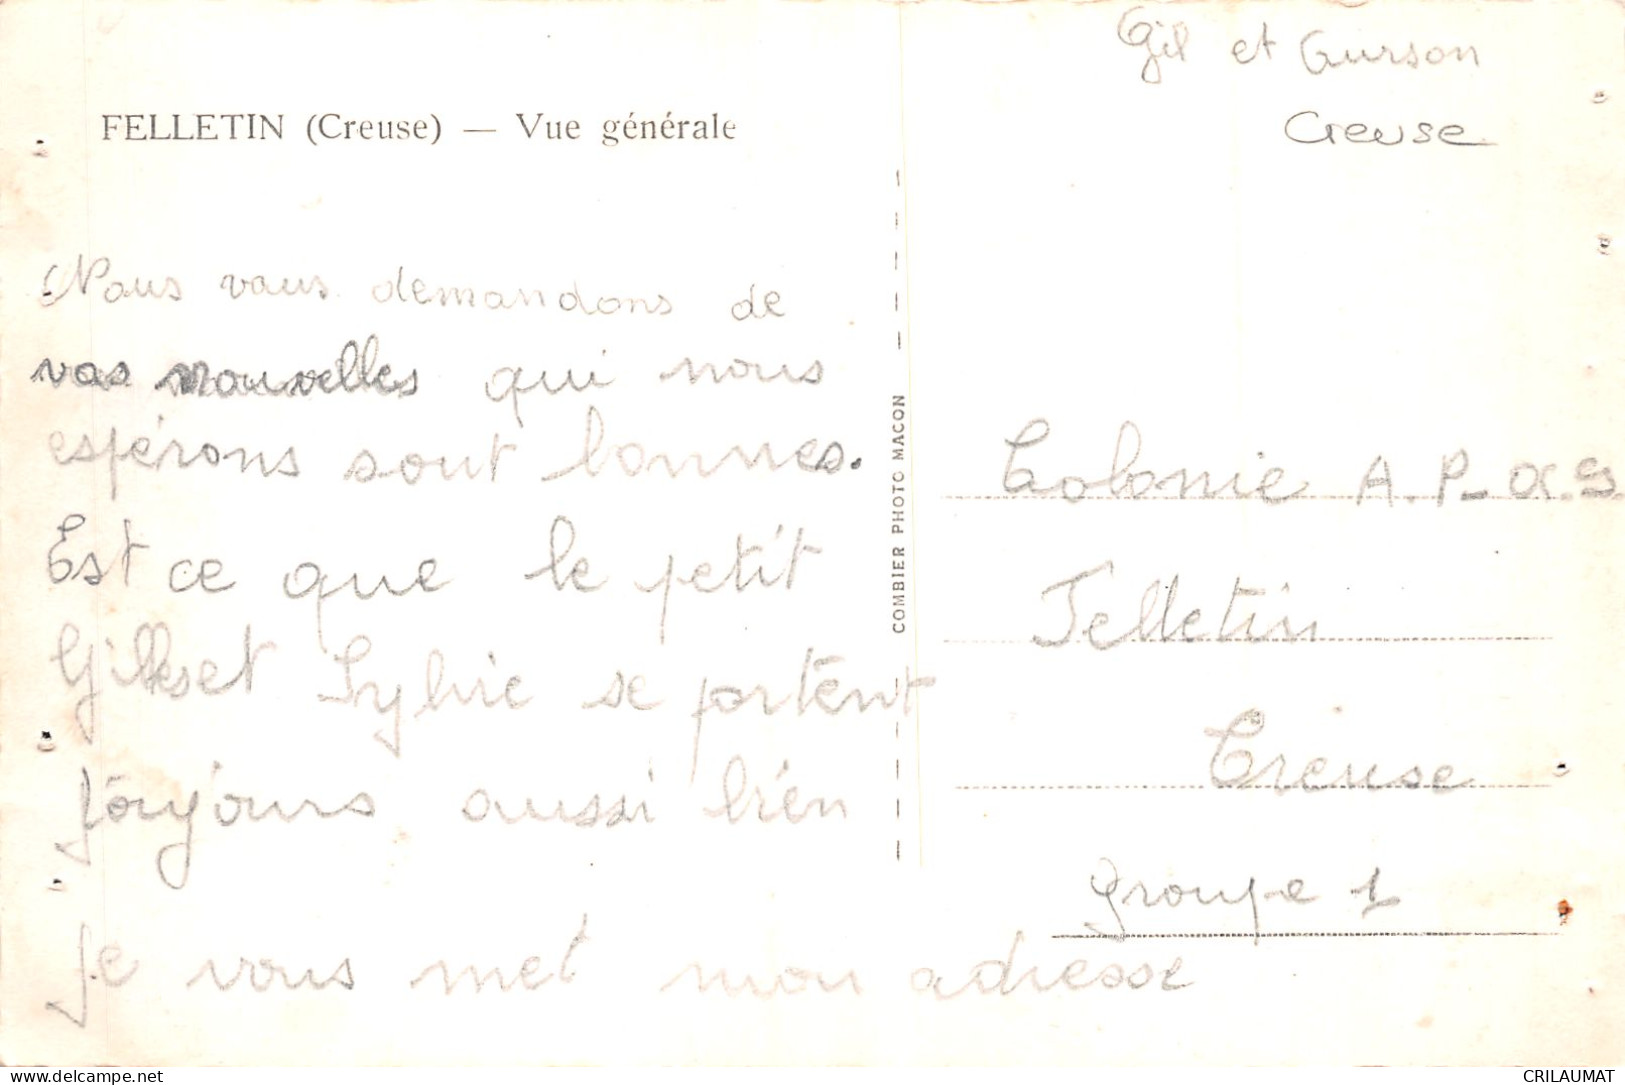 Gil et Gurson
Creuse
FELLETIN (Creuse) — Vue générale
Nous vous demandons de
vos nouvelles qui nous
espérons sont bonnes.
Est ce que le petit
Gilles et Sylvie se portent
toujours aussi bien
je vous met mon adresse
COMBIER PHOTO MACON
Colonie A.P-
Felletin
Creuse
groupe 1
delcampe.net
CRILAUMAT